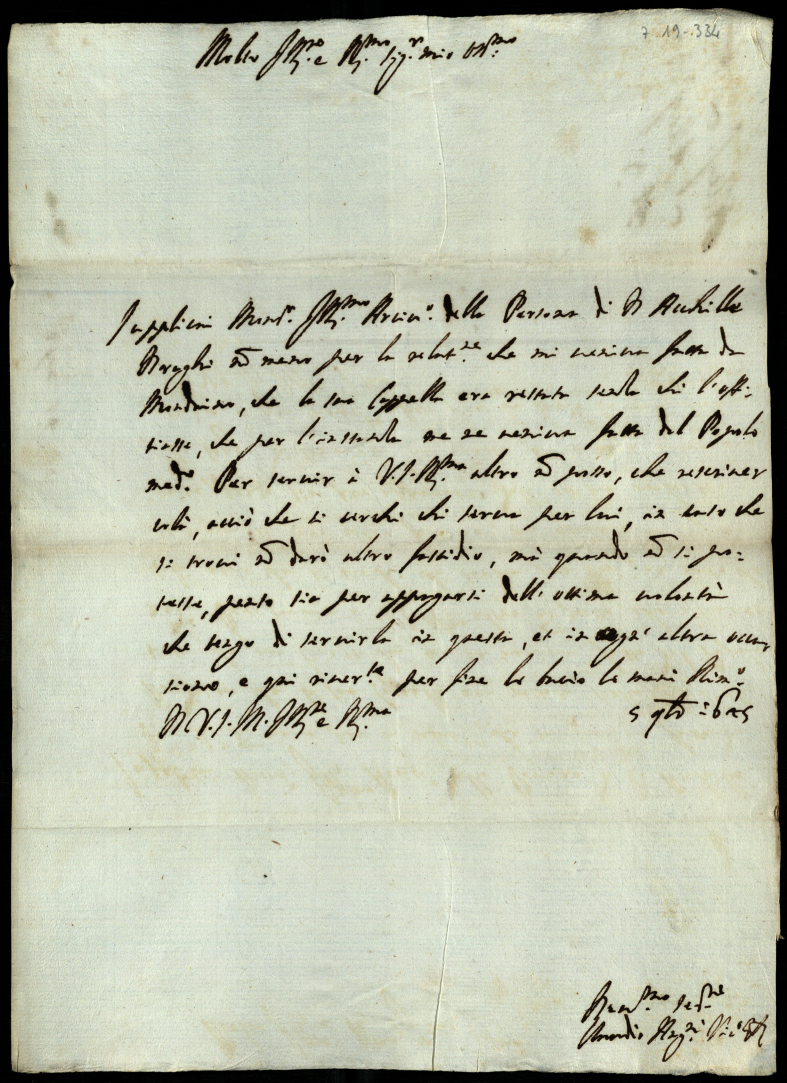 7 19-334
Molto Ill.re e R.mo Sig.r mio Oss.mo
Supplicai Mons.r Ill.mo Arciv.o della Persona di D Achille
Braghi nō meno per la relat.ne che mi veniva fatta da
Mondaino, che la sua Cappella era restata senza chi l'offi-
tiasse, che per l'instanza me ne veniva fatta dal Popolo
med.o Per servir à V.S.R.ma altro nō posso, che rescriver
colà, acciò che si cerchi chi serva per lui, in caso che
si trovi nō darò altro fastidio, mà quando nō si po-
tesse, penso sia per appagarsi dell' ottima volontà
che tengo di servirla in questa, et in ogni altra occa-
sione, e qui river.te per fine le bacio le mani Rim.o
D V.S.M.Ill.re e R.ma
Dev.mo Ser.re